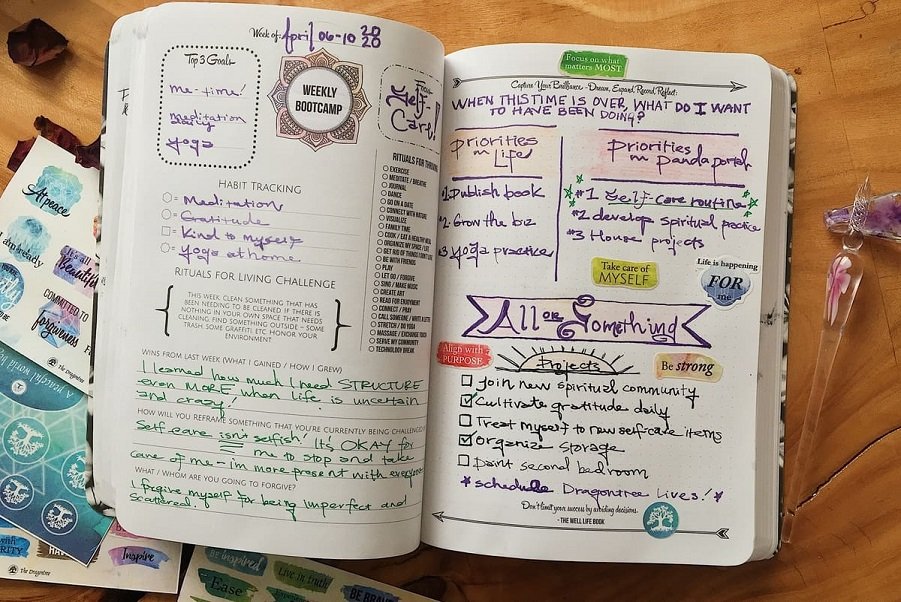 Week of: April 06-10 2020
Top 3 Goals
me-time!
meditation
yoga
WEEKLY
BOOTCAMP
FOCUS
Self-
Care!
HABIT TRACKING
Meditation
Gratitude
Kind to myself
Yoga at home
RITUALS FOR LIVING CHALLENGE
THIS WEEK, CLEAN SOMETHING THAT HAS
BEEN NEEDING TO BE CLEANED. IF THERE IS
NOTHING IN YOUR OWN SPACE THAT NEEDS
CLEANING FIND SOMETHING OUTSIDE – SOME
TRASH, SOME GRAFFITI, ETC. HONOR YOUR
ENVIRONMENT
RITUALS FOR
EXERCISE
MEDITATE / BREATHE
JOURNAL
DANCE
GO ON A DATE
CONNECT WITH NATURE
VISUALIZE
FAMILY TIME
COOK / EAT A HEALTHY MEAL
ORGANIZE MY SPACE /
GET RID OF THINGS I DON'T
BE WITH FRIENDS
PLAY
LET GO / FORGIVE
SING / MAKE MUSIC
CREATE ART
READ FOR ENJOYMENT
CONNECT / PRAY
CALL SOMEONE / WRITE A
STRETCH / DO YOGA
MASSAGE / EXCHANGE
SERVE MY COMMUNITY
TECHNOLOGY BREAK
WINS FROM LAST WEEK (WHAT I GAINED / HOW I GREW)
I learned how much I need STRUCTURE
even MORE when life is uncertain
and crazy!
HOW WILL YOU REFRAME SOMETHING THAT YOU'RE CURRENTLY BEING CHALLENGED
Self-care isn't selfish! It's OKAY for
me to stop and take
care of me – im more present with everyone
WHAT / WHOM ARE YOU GOING TO FORGIVE?
I forgive myself for being imperfect and
scattered.
Focus on what
matters MOST
Capture Your Brilliance – Dream, Expand, Record, Reflect:
WHEN THIS TIME IS OVER, WHAT DO I WANT
TO HAVE BEEN DOING?
Priorities
in Life
#1 Publish book
#2 Grow the biz
#3 Yoga practice
Priorities
in
#1 Self-care routine
#2 develop spiritual practice
#3 House projects
Take care of
MYSELF
Life is happening
FOR
me
All or Something
Align with
PURPOSE
Projects
Be strong
Join new spiritual community
Cultivate gratitude daily
Treat myself to new self-care items
Organize storage
Paint second bedroom
*schedule Dragontree Lives! *
Don't limit your success by avoiding decisions.
- THE WELL LIFE BOOK
At peace
I am already
It's all
Beautiful
COMMITTED TO
forgiveness
The Dragontree
A peaceful world
Inspire
The Dragontree
Be inspired
Live in truth
Ease
BE BRAVE